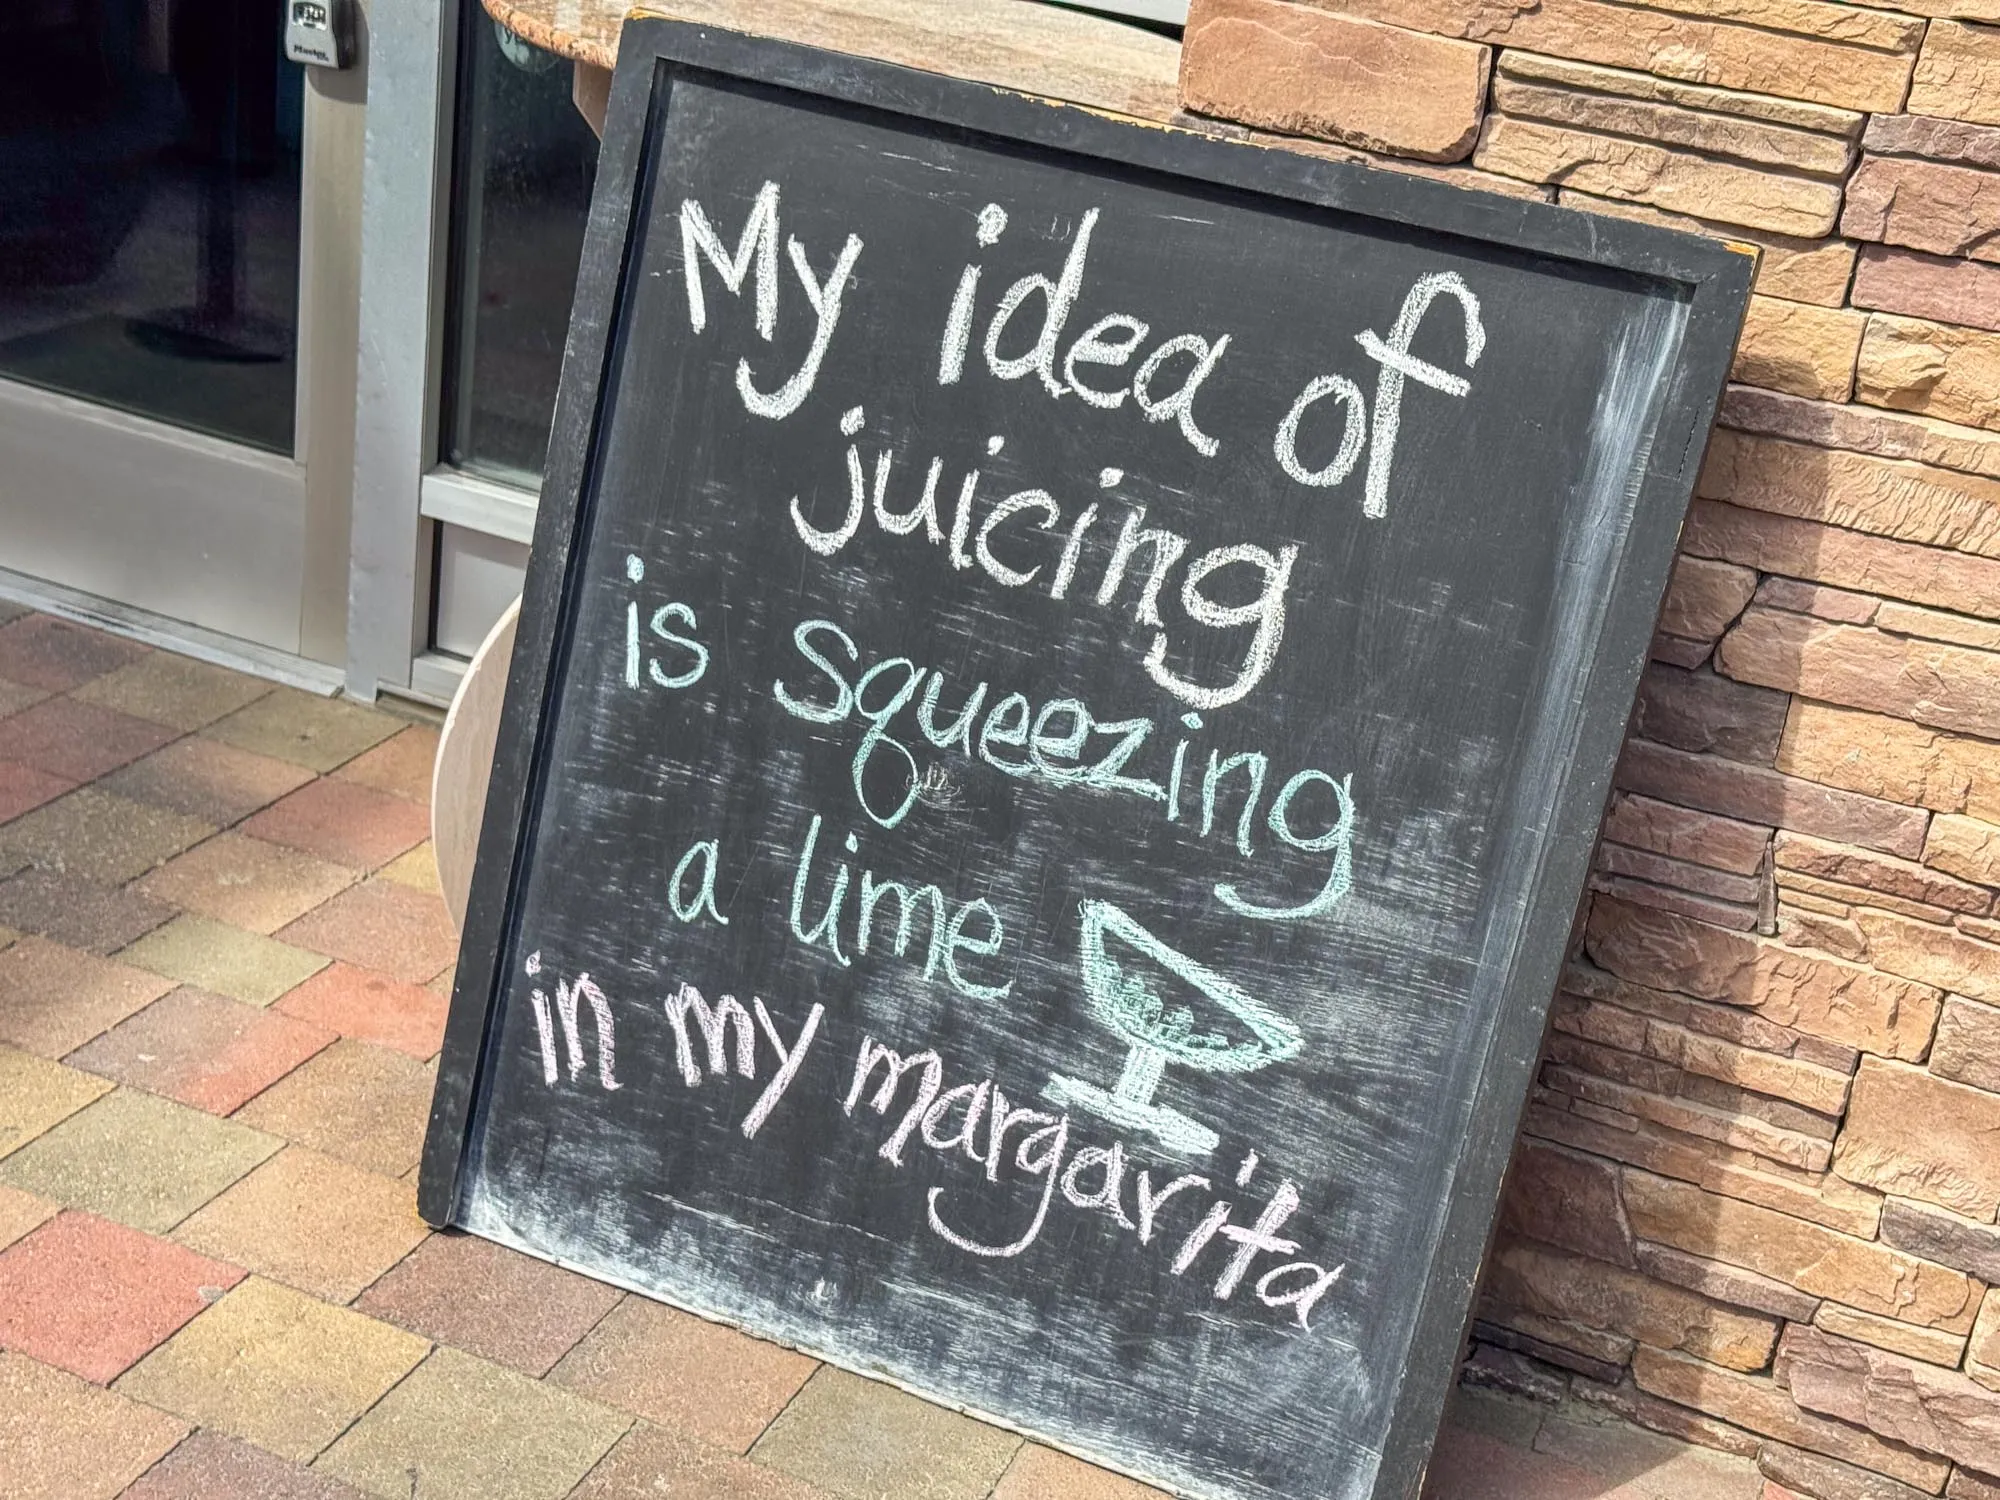 My idea of
juicing
is squeezing
a lime
in my margarita